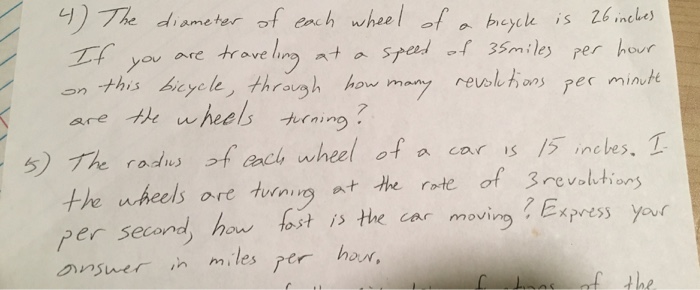 4) The diameter of each wheel of a bicycle is 26 inches
If you are traveling at a speed of 35 miles per hour
on this bicycle, through how many revolutions per minute
are the wheels turning?
5) The radius of each wheel of a car is 15 inches. I
the wheels are turning at the rate of 3 revolutions
per second, how fast is the car moving? Express your
answer in miles per hour.
of the